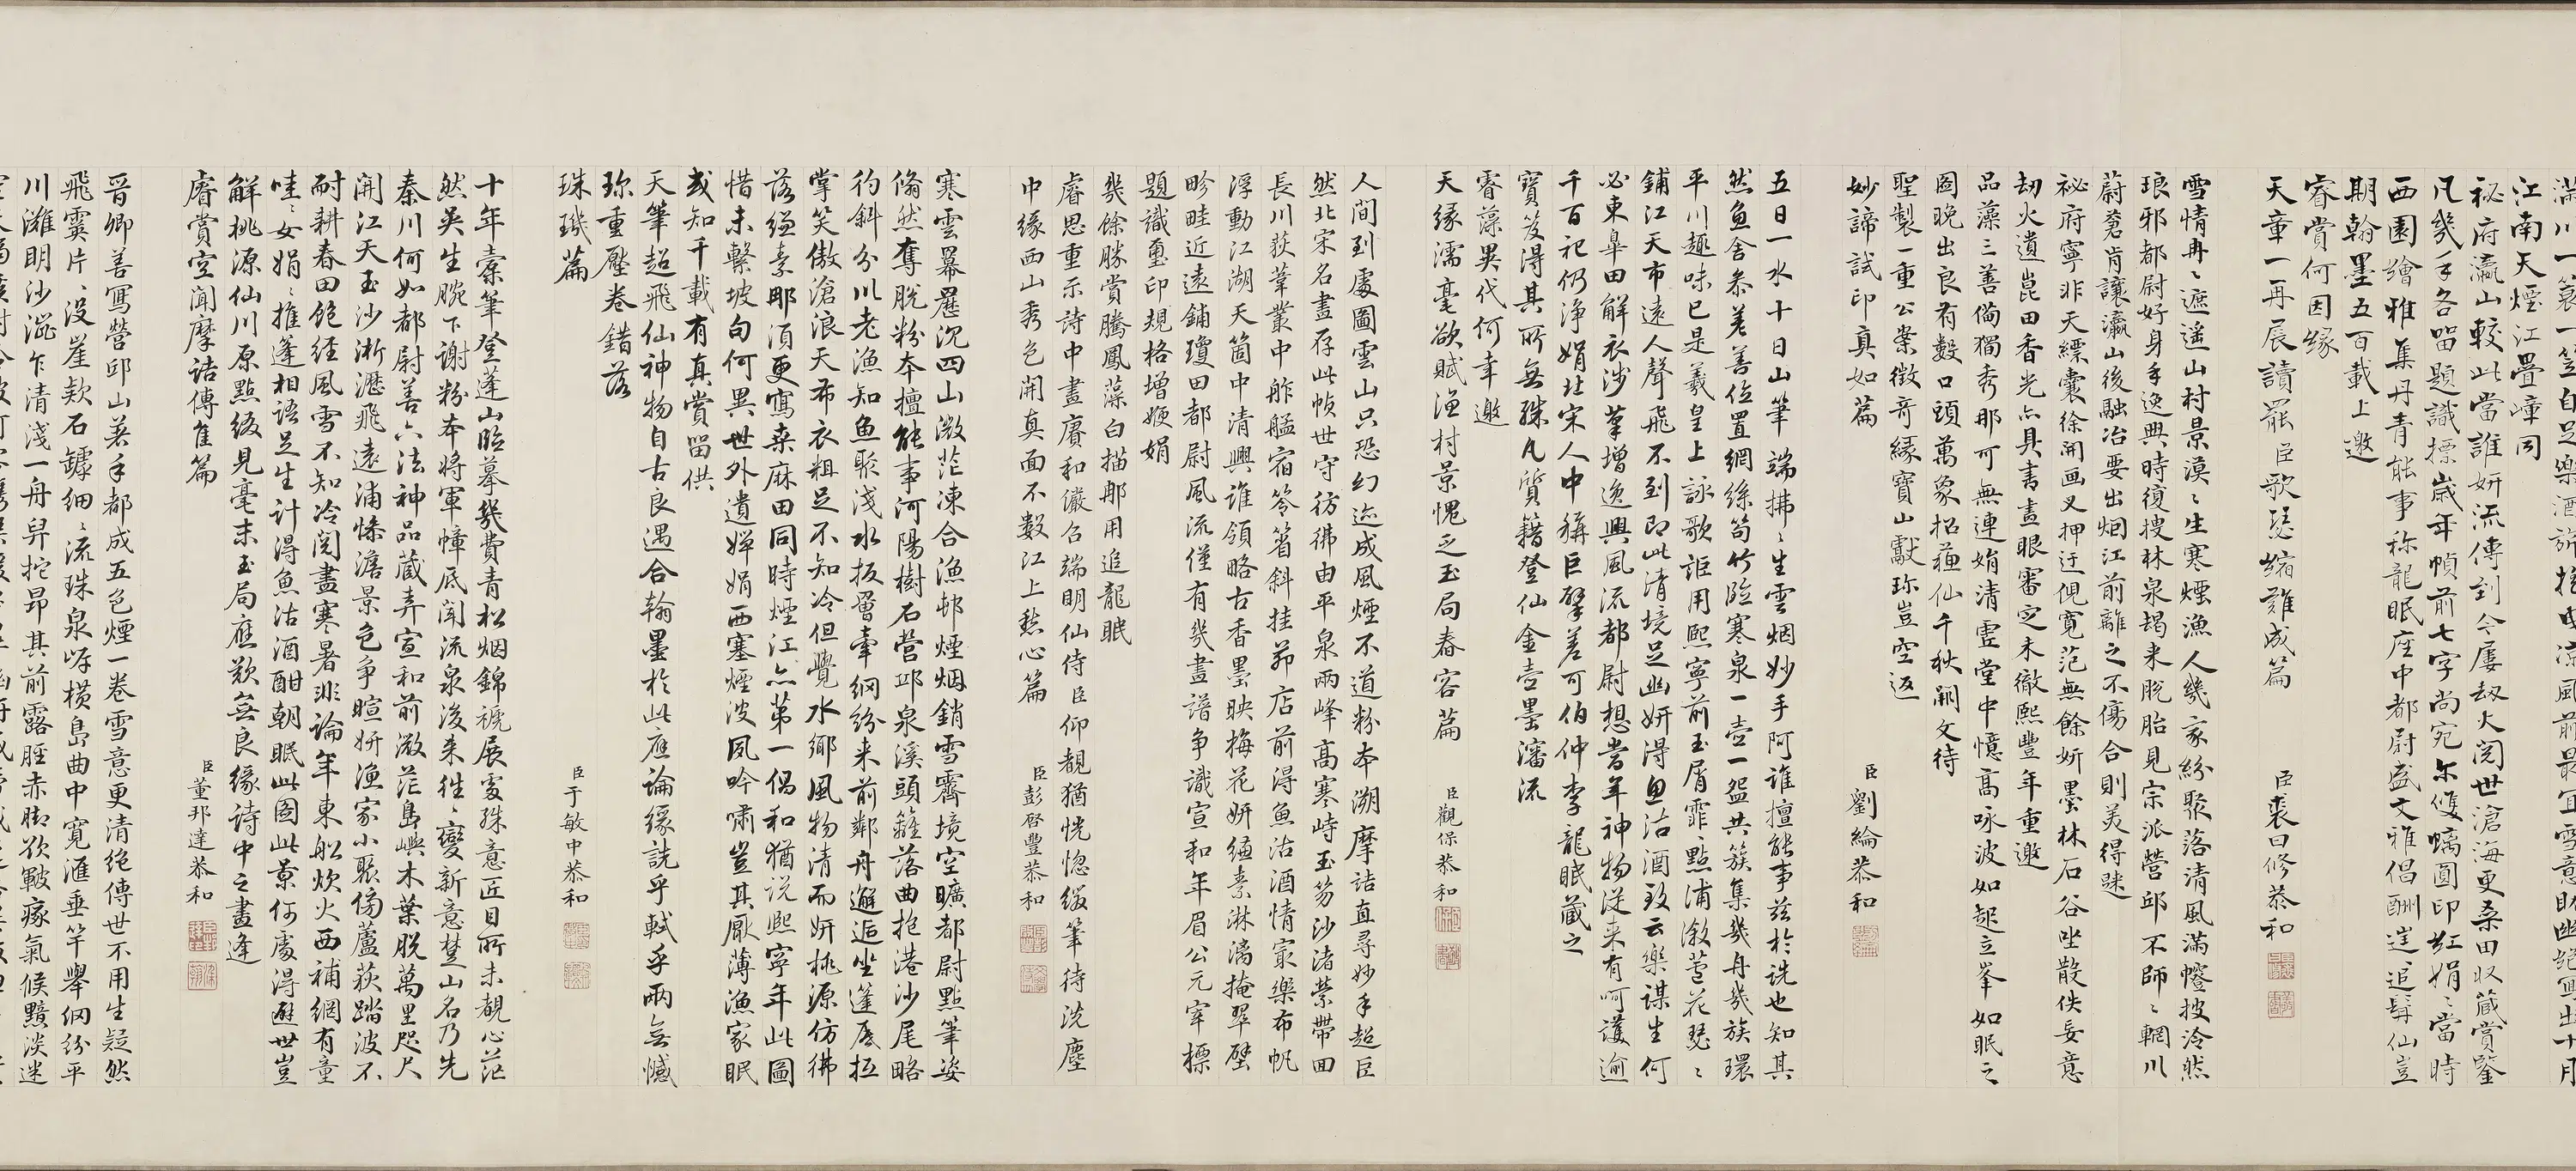 江南天煙江疊嶂同
秘府瀛山較此當誰妍流傳到今屢劫火閱世滄海更桑田收藏賞鑒
凡幾手各留題識摽歲年幀前七字尚宛尔雙螭圓印紅娟〻當時
西園繪雅集丹青能事称龍眠座中都尉盛文雅倡酬逹追髯仙豈
期翰墨五百載上邀
睿賞何因緣
天章一再辰讀罷臣歌琵縮難成篇
臣裘曰修恭和
雪情冉〻遮遥山村景漠〻生寒煙漁人幾家紛聚落清風滿㡧披泠然
琅邪都尉好身手逸興時復搜林泉朅来脫胎見宗派營邱不師〻輞川
蔚蒼肯讓瀛山後融冶要出烟江前離之不傷合則美得昧
祕府寧非天縹囊徐開画叉押迂倪寛范無餘妍墨林石谷坐散佚妄意
劫火遺崑田香光亦具書畫眼審定未徹熙豐年重邀
品藻三善備獨秀那可無連娟清䨩堂中憶髙咏波如䟐立峯如眠之
圖晚出良有數口頭萬象招蘓仙千秋闕文待
聖製一重公案徴奇緣寶山獻珎豈空返
妙諦試印真如篇
臣劉綸恭和
五日一水十日山筆端拂〻生雲烟妙手阿誰擅能事兹於詵也知其
然魚舍叅差善位置網絲笱竹臨寒泉一壺一盌共簇集幾舟幾族環
平川趣味已是羲皇上詠歌詎用熙寧前玉屑霏〻點浦漵葦花瑟〻
鋪江天市遠人聲飛不到即此清境足幽妍得魚沽酒致云樂謀生何
必東臯田解衣涉筆增逸興風流都尉想當年神物從来有呵護逾
千百祀仍淨娟北宋人中稱巨擘差可伯仲李龍眠藏之
寶笈得其所無殊凡質籍登仙金壺墨瀋流
睿藻異代何幸邀
天緣濡毫欲賦漁村景愧乏玉局春容篇
臣觀保恭和
人間到處圖雲山只恐幻迹成風煙不道粉本溯摩詰直尋妙手超巨
然北宋名畫存此幀世守彷彿由平泉兩峰高寒峙玉笏沙渚縈帶回
長川荻葦叢中舴艋宿笭箵斜挂茆店前得魚沽酒情寂樂布帆
浮動江湖天箇中清興誰領略古香墨映梅花妍縑素淋漓掩翠壁
畛畦近遠鋪瓊田都尉風流僅有幾畫譜争識宣和年眉公元宰標
題識璽印規格增㛹娟
幾餘勝賞騰鳳藻白描那用追龍眠
睿思重示詩中畫賡和儼召端明仙侍臣仰覩猶恍惚綴筆待洗塵
中緣西山秀色開真面不數江上愁心篇
臣彭啓豐恭和
寒雲羃䍥沉四山溦茫凍合漁邨煙烟銷雪霽境空曠都尉點筆姿
翛然奪脫粉本擅能事河陽樹石營邱泉溪頭籬落曲抱港沙尾略
彴斜分川老漁知魚聚淺水扳罾牽網紛来前鄰舟邂逅坐蓬底抵
掌笑傲滄浪天布衣粗足不知冷但覺水鄉風物清而妍桃源仿彿
落縑素那須更寫桒麻田同時煙江亦第一倡和猶説熙寧年此圖
惜未繫坡句何異世外遺嬋娟西塞煙波夙吟嘯豈其厭薄漁家眠
或知千載有真賞留供
天筆超飛仙神物自古良遇合翰墨於此應論緣詵乎軾乎兩無憾
珎重壓卷錯落
珠璣篇
臣于敏中恭和
十年橐筆登蓬山臨摹幾費青松烟錦褫展處殊意匠目所未覩心茫
然吳生腕下謝粉本將軍幛底聞流泉後来徃〻變新意楚山名乃先
秦川何如都尉善六法神品蔵弆宣和前溦茫島嶼木葉脫萬里咫尺
開江天玉沙淅瀝飛遠浦慘澹景色争暄妍漁家小聚傍蘆荻踏波不
耐耕春田飽經風雪不知冷閱盡寒暑非論年東船炊火西補網有童
哇〻女娟〻推蓬相語足生計得魚沽酒酣朝眠此圖此景何處得避世豈
解桃源仙川原點綴見毫末玉局應歎無良緣詩中之畫逢
睿賞空聞摩詰傳隹篇
臣董邦達恭和
晉卿善冩營邱山着手都成五色煙一卷雪意更清絶傳世不用生疑然
飛霙片〻沒崖欵石罅細〻流珠泉嶼横島曲中寛滙垂竿舉網紛平
川灘明沙澀乍清淺一舟舁拕昂其前露脛赤脚欲皸瘃氣候黲淡迷